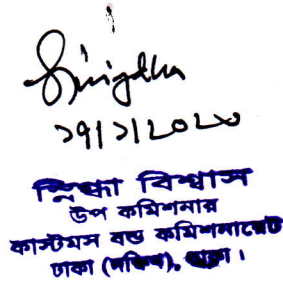 Snigdha
১৭/১/২০২০
স্নিগ্ধা বিশ্বাস
উপ কমিশনার
কাস্টমস বন্ড কমিশনারেট
ঢাকা (দক্ষিণ), ঢাকা।